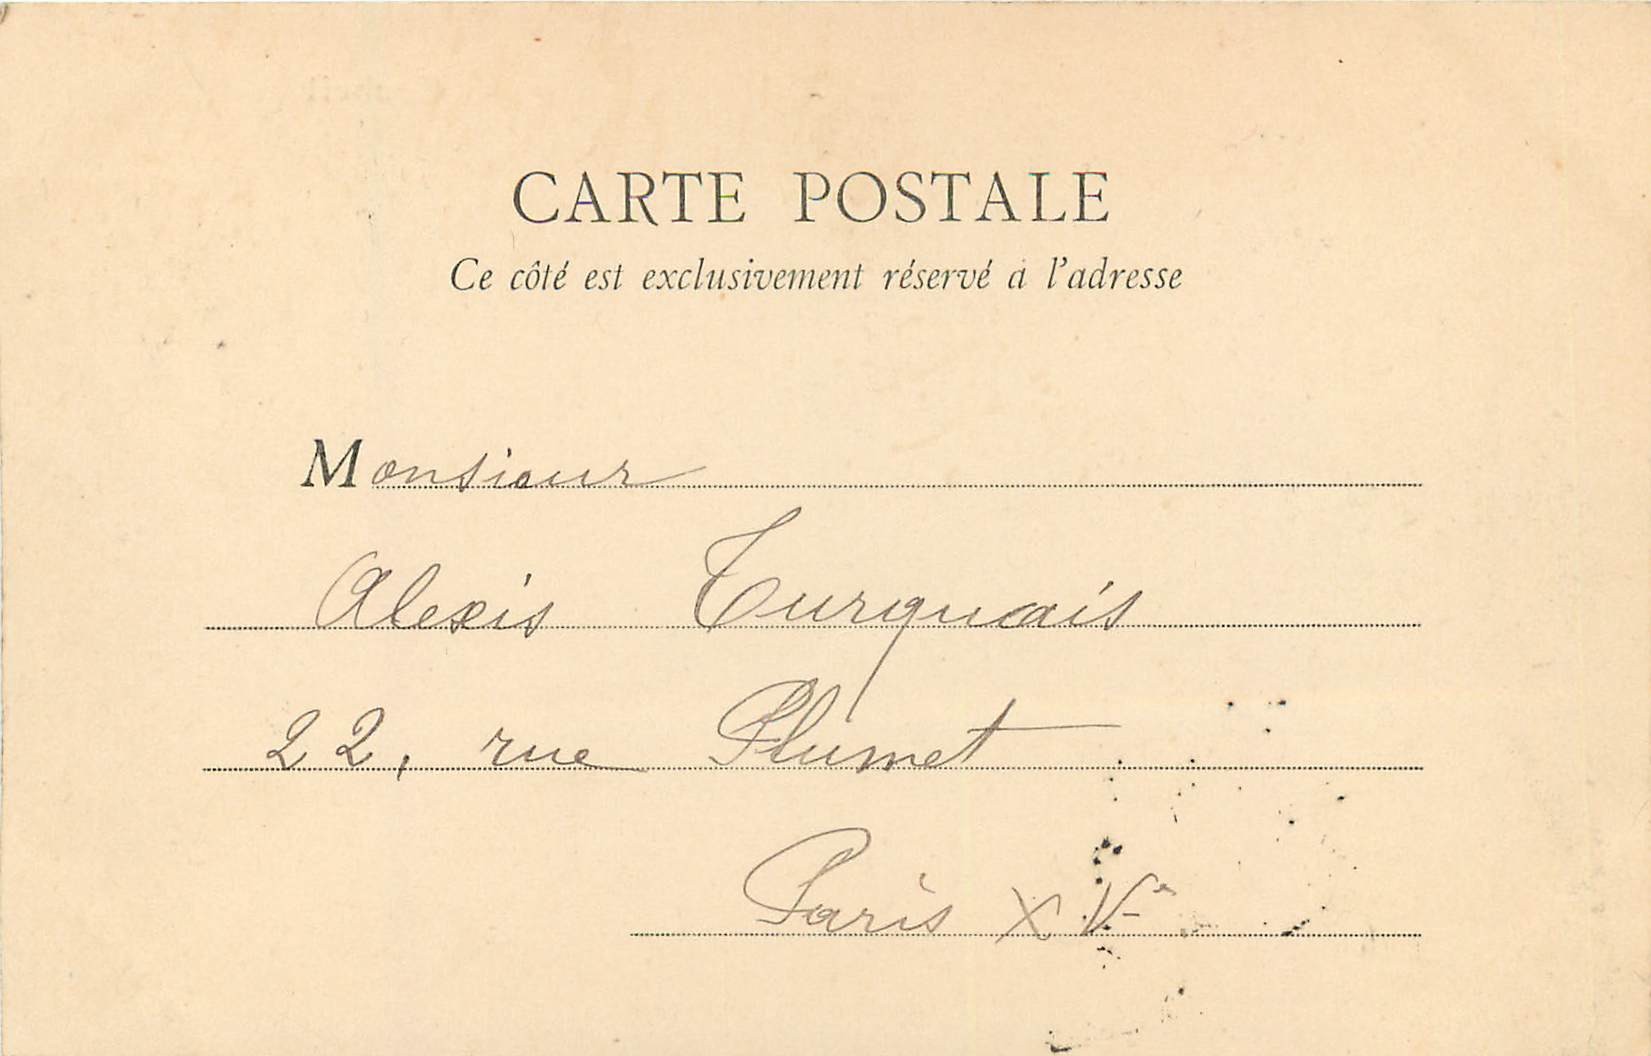 CARTE POSTALE
Ce côté est exclusivement réservé à l'adresse
Monsieur
Alexis Turquais
22, rue Plumet
Paris XVe